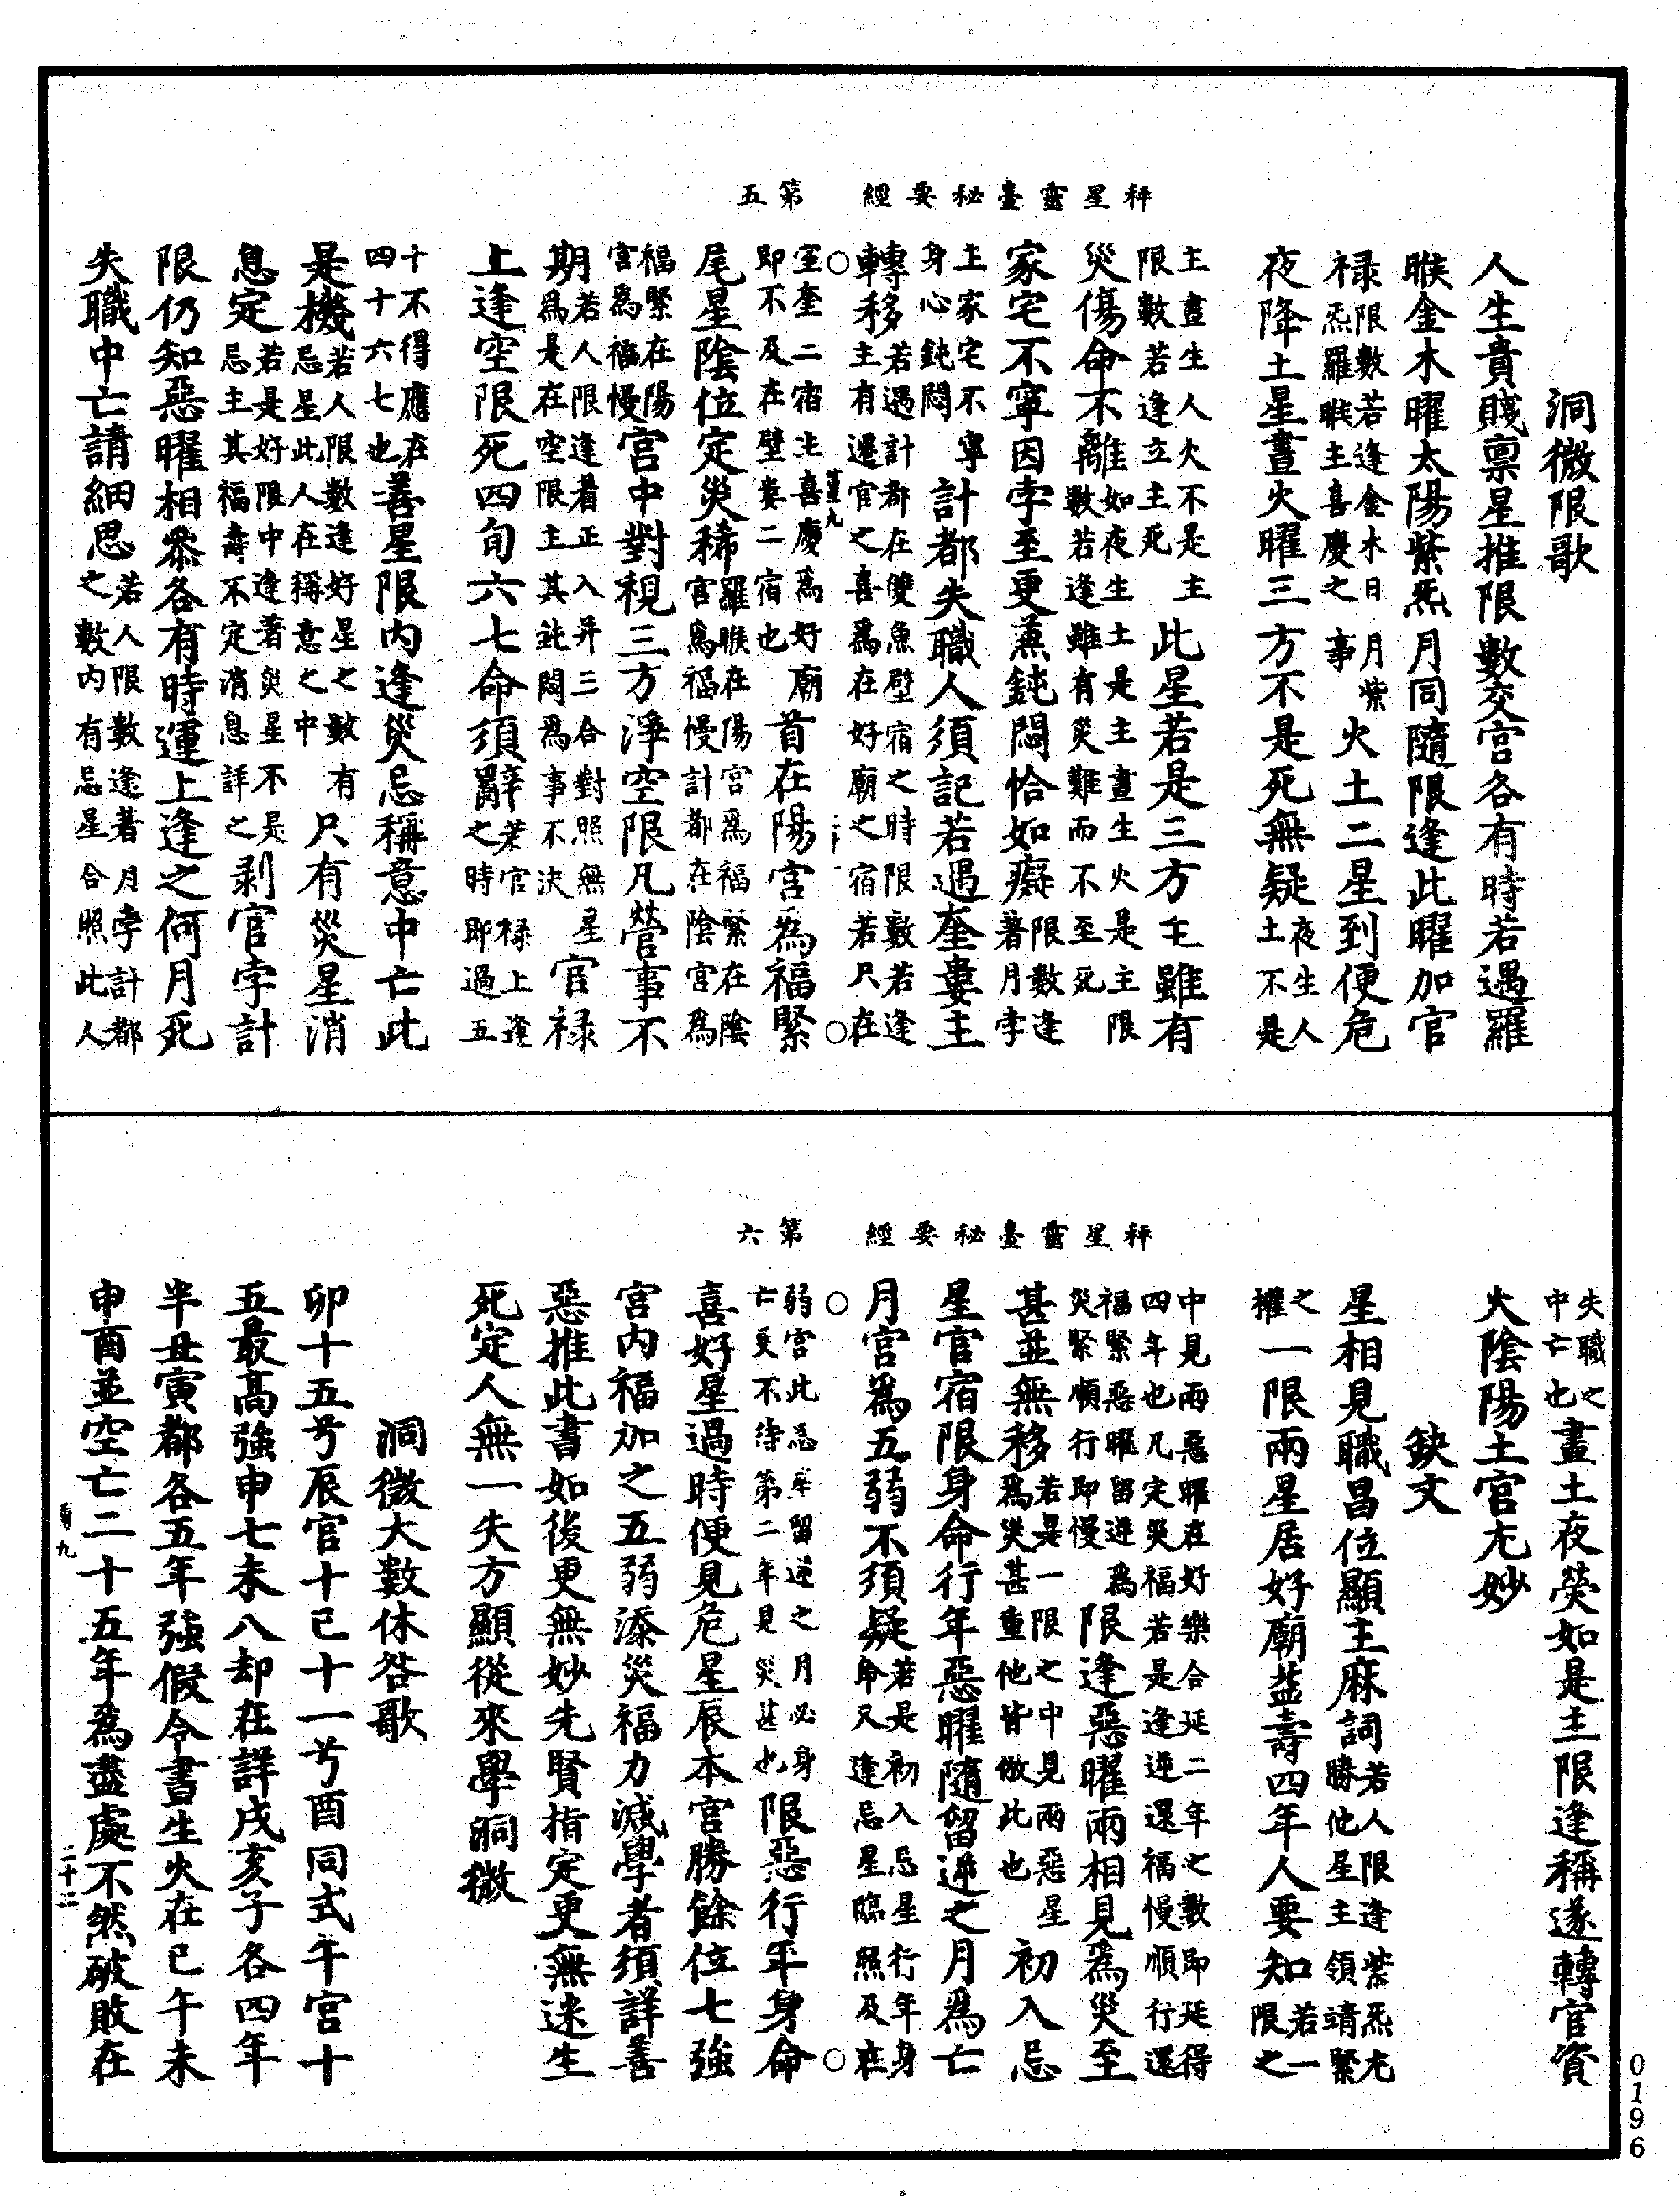 秤星靈臺秘要經　第五
洞微限歌
人生貴賤禀星推限數交宮各有時若遇羅
睺金木曜太陽紫炁月同隨限逢此曜加官
祿限數若逢金水日月紫炁羅睺主喜慶之事火土二星到便危
夜降土星晝火曜三方不是死無疑夜生人土不是
主晝生人火不是主限數若逢立主死此星若是三方主雖有
災傷命不離如夜生土是主晝生火是主限數若逢雖有災難而不至死
家宅不寧因孛至更蒸鈍悶恰如癡限數逢著月孛
主家宅不寧身心鈍悶計都失職人須記若遇奎婁主
轉移若遇計都在雙魚壁宿之時限數若逢主有遷官之喜為在好廟之宿若只在
室奎二宿坐喜慶為好廟即不及在壁婁二宿也首在陽宮為福緊
尾星陰位定災稀羅睺在陽宮為福緊在陰宮為福慢計都在陰宮為
福緊在陽宮為福慢宮中對視三方淨空限凡營事不
期若人限逢着正入并三合對照無星為是在空限主其鈍悶為事不決官祿
上逢空限死四旬六七命須辭若官祿上逢之時即過五
十不得應在四十六七也善星限內逢災忌稱意中亡此
是機若人限數逢好星之數有忌星此人在稱意之中只有災星消
息定若是好限中逢著災星不是忌主其福壽不定消息詳之剥官孛計
限仍知惡曜相叅各有時運上逢之何月死
失職中亡請細思若人限數逢著月孛計都之數內有忌星合照此人
秤星靈臺秘要經　第六
失職之中亡也晝土夜熒如是主限逢稱遂轉官資
火陰陽土官尤妙
缺文
星相見職昌位顯主麻詞若人限逢紫炁尤勝他星主領靖緊
之權一限兩星居好廟益壽四年人要知若一限之
中見兩惡曜在好樂合延二年之數即延得四年也凡定災福若是逢逆還福慢順行還
福緊惡曜留逆為災緊順行即慢限逢惡曜兩相見為災至
甚並無移若是一限之中見兩惡星為災甚重他皆倣此也初入忌
星官宿限身命行年惡曜隨留逆之月為亡
月官為五弱不須疑若是初入忌星行年身命又逢忌星臨照及在
弱宮此忌年留逆之月必身亡更不待第二年見災甚也限惡行年身命
喜好星過時便見危星辰本宮勝餘位七強
宮內福加之五弱添災福力減學者須詳善
惡推此書如後更無妙先賢指定更無迷生
死定人無一失方顯從來學洞微
洞微大數休咎歌
卯十五兮辰宮十巳十一兮酉同式午宮十
五最高強申七未八却在詳戌亥子各四年
半丑寅都各五年強假令晝生火在巳午未
申酉並空亡二十五年為盡處不然破敗在
0196